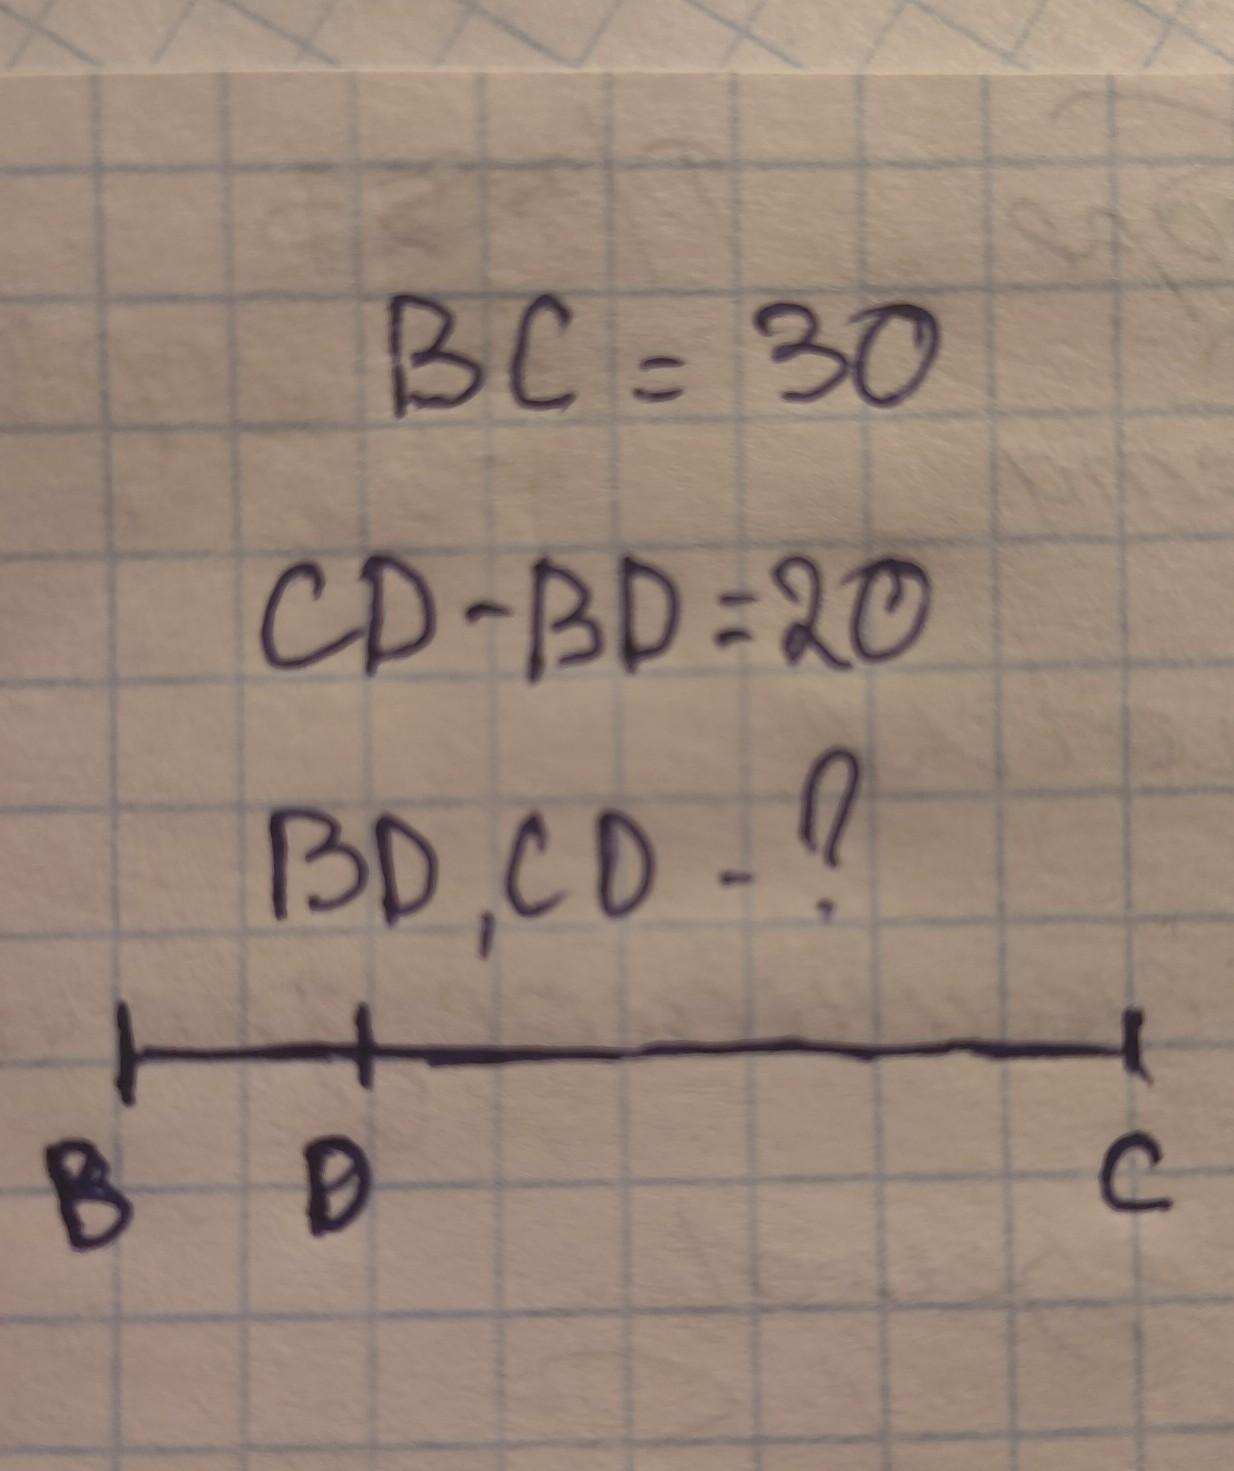 BC = 30
CD-BD=20
BD, CD - ?
B D C